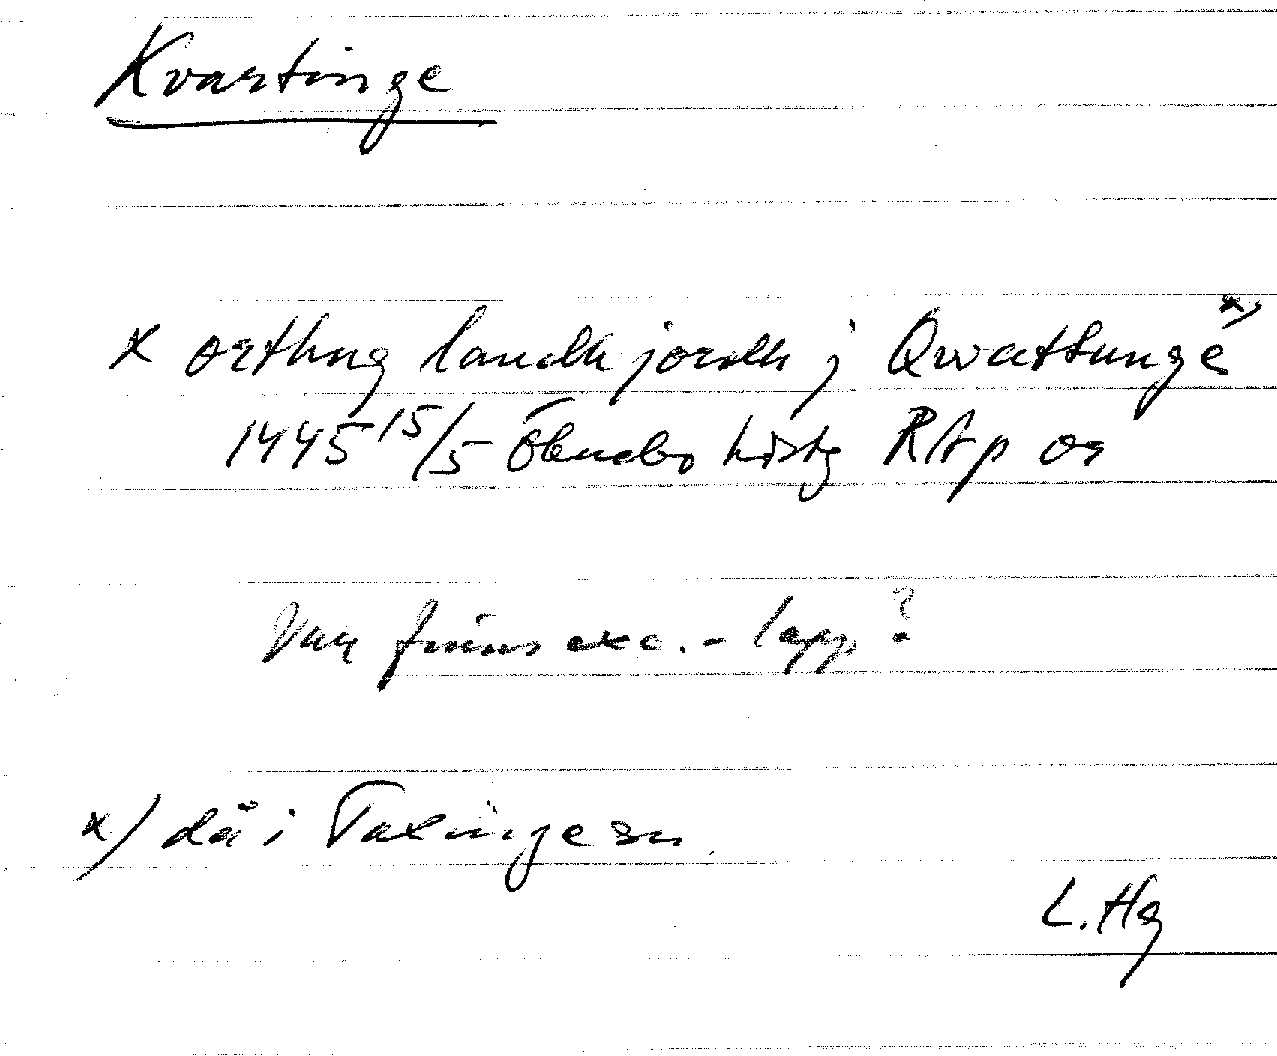 Kvartinge
x orthug landh jordh j Qwattunge x)
1445 15/5 Öknebo hd RAp or
Var finns exc.-lapp?
x) då i Taxinge sn
L. Hg